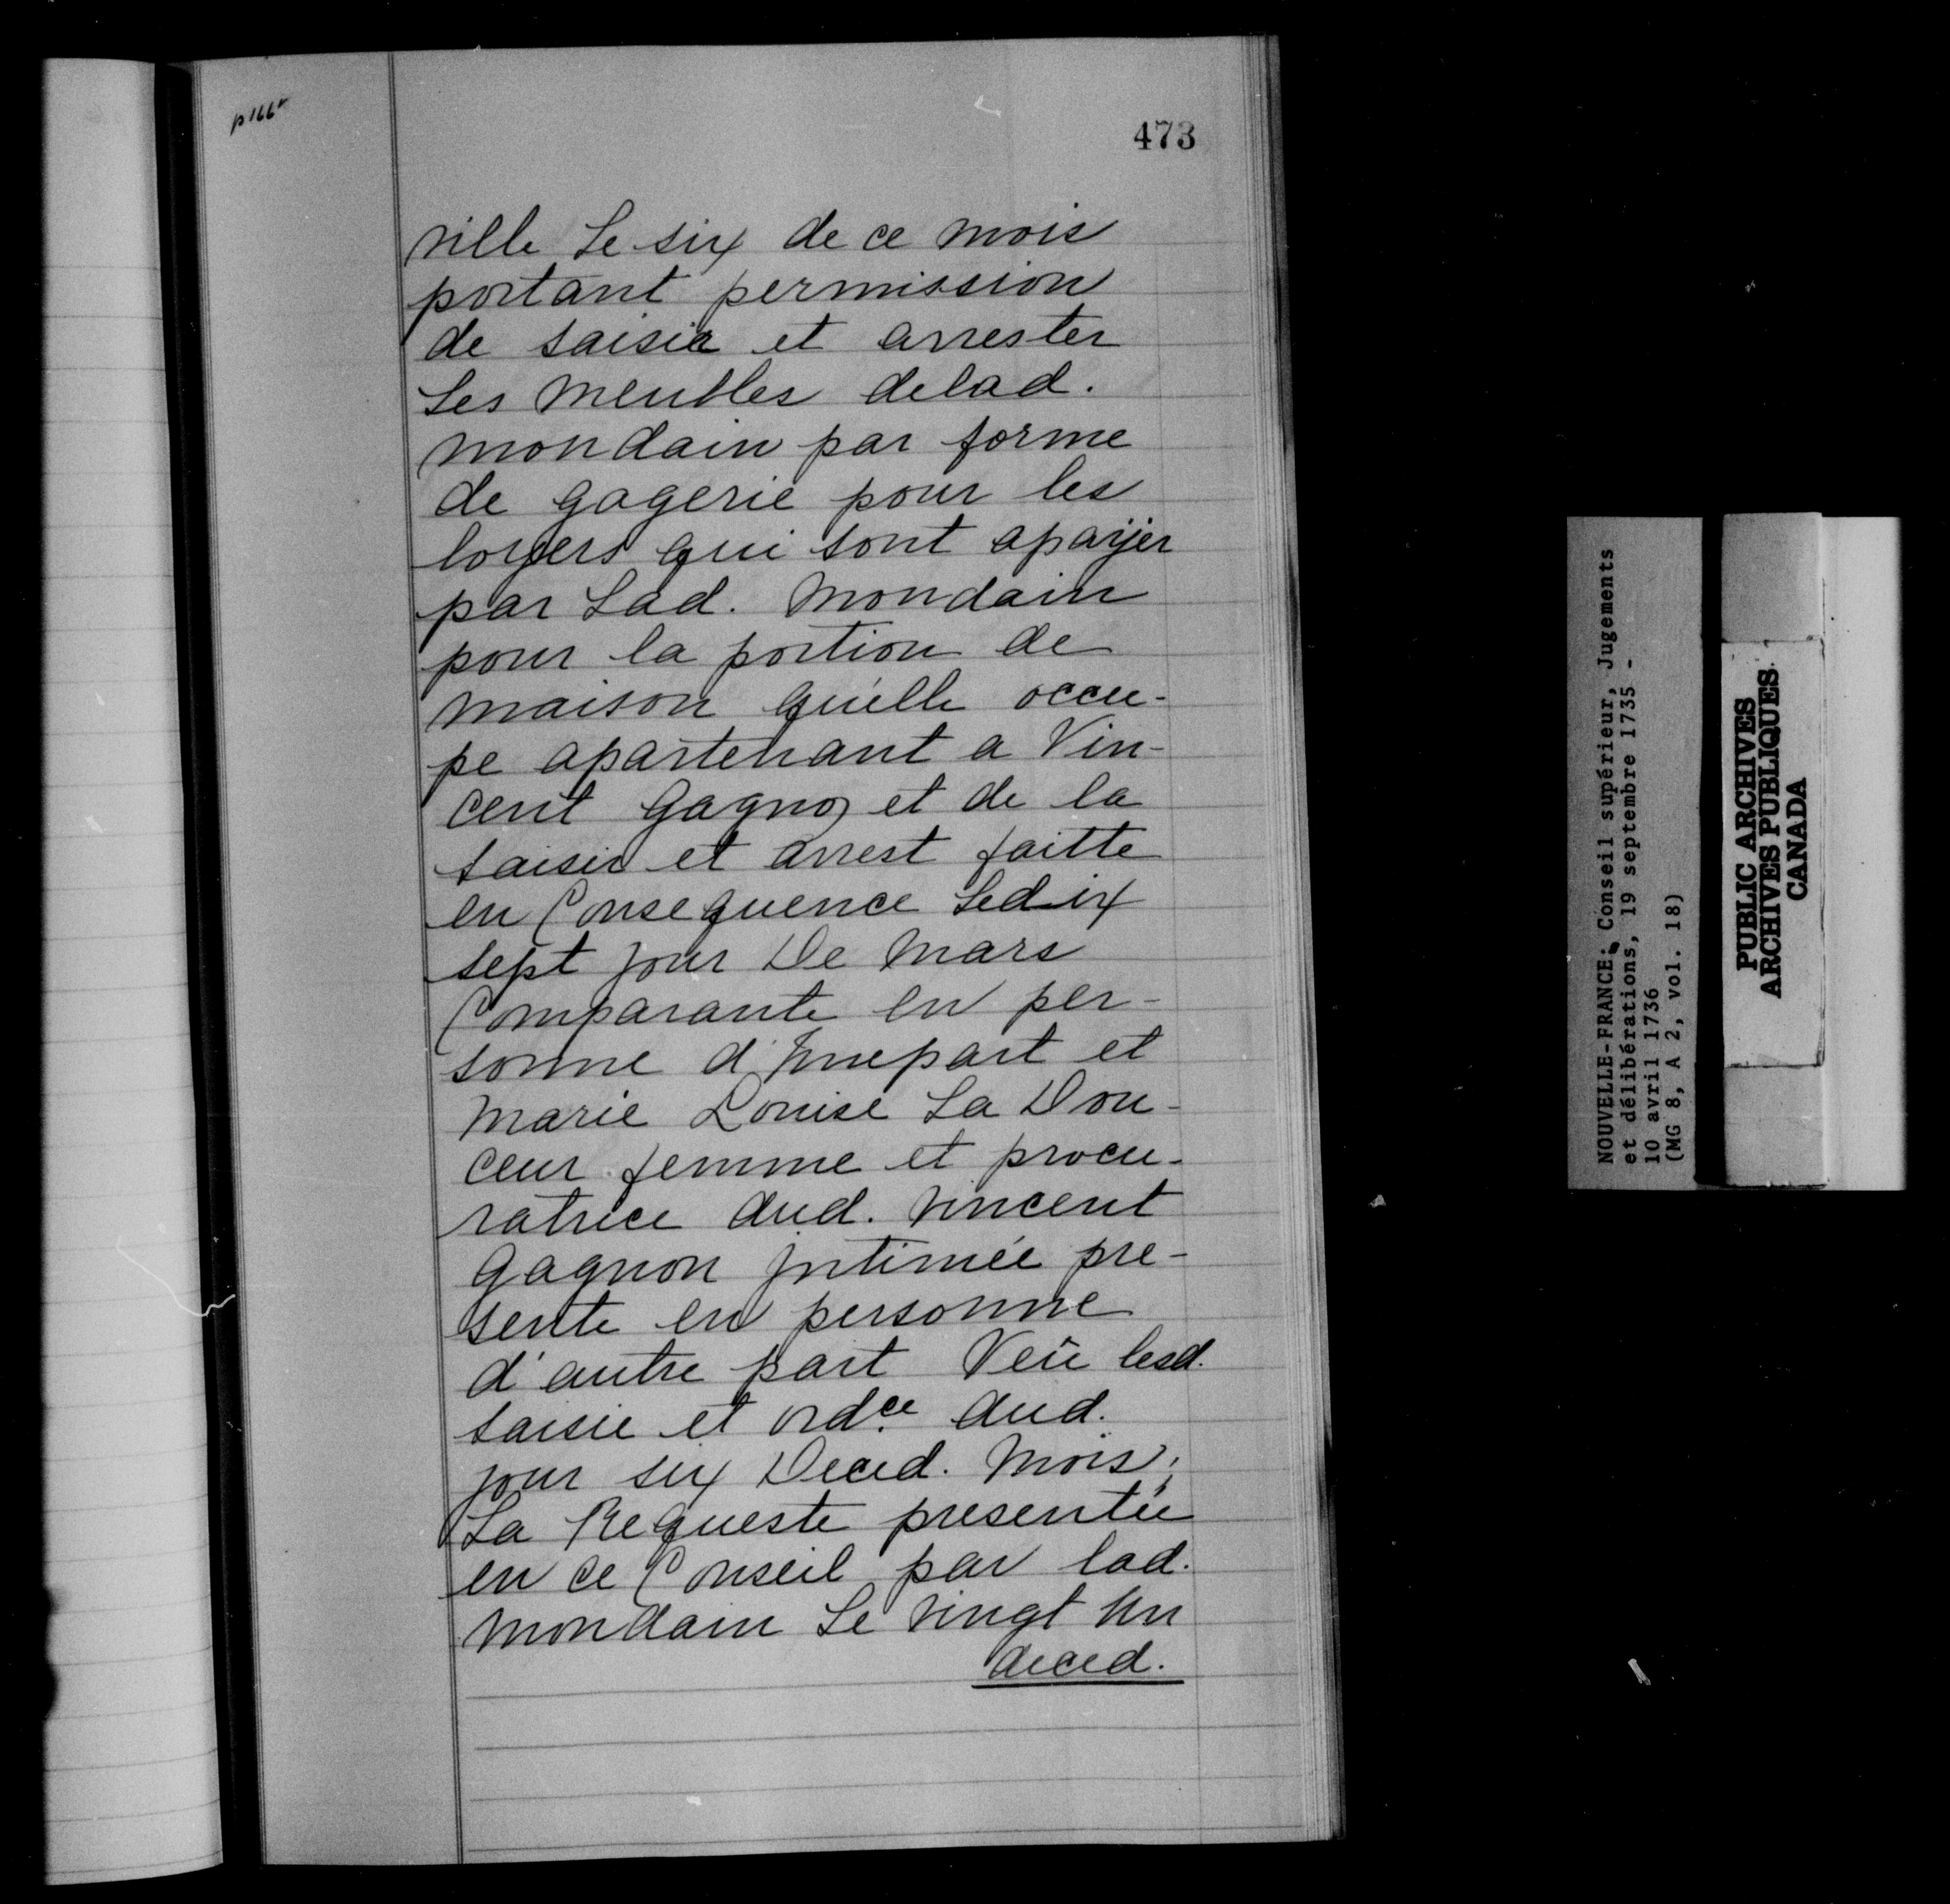 p 166r
473
ville Le six de ce mois
portant permission
de saisir et arrester
Les meubles delad.
mondain par forme
de gagerie pour les
loyers qui sont apayer
par Lad. Mondain
pour la portion de
maison qu'elle occu-
pe apartenant a Vin-
cent gagnon et de la
saisie et arrest faitte
en Consequence Ledix
sept jour De Mars
Comparante en per-
sonne d'Unepart et
Marie Louise La Dou-
ceur femme et procu-
ratrice dud. Vincent
gagnon jntimée pre-
sente en personne
d'autre part Veü lesd.
saisie et ordce. dud.
jour six Deced. Mois;
La Requeste presentée
en ce Conseil par lad.
mondain Le Vingt Un
deced.
NOUVELLE-FRANCE: Conseil supérieur, Jugements
et délibérations, 19 septembre 1735 -
10 avril 1736
(MG 8, A 2, vol. 18)
PUBLIC ARCHIVES
ARCHIVES PUBLIQUES
CANADA